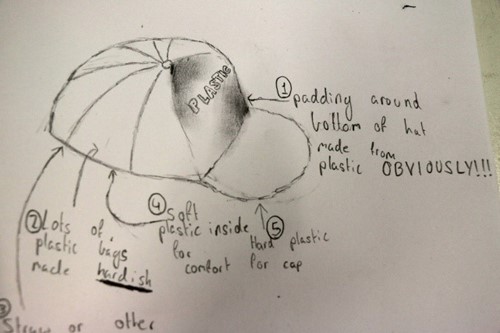 PLASTIC
① padding around
bottom of hat
made from
plastic OBVIOUSLY!!!
② Lots of
plastic bags
made hardish
④ Soft
plastic inside
for
comfort
⑤
Hard plastic
for cap
③
Straw or other